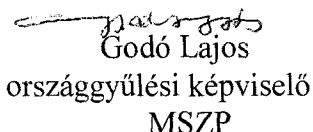 Godó Lajos
országgyűlési képviselő
MSZP